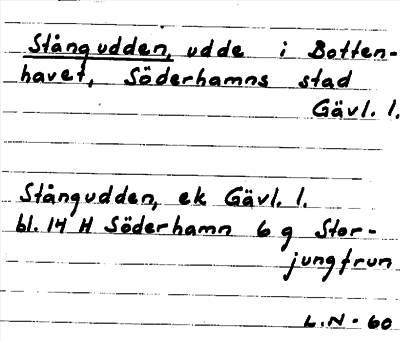 Stångudden, udde i Botten-
havet, Söderhamns stad
Gävl. l.
Stångudden, ek Gävl. l.
bl. 14 H Söderhamn 6 g Stor-
jungfrun
L.N. 60